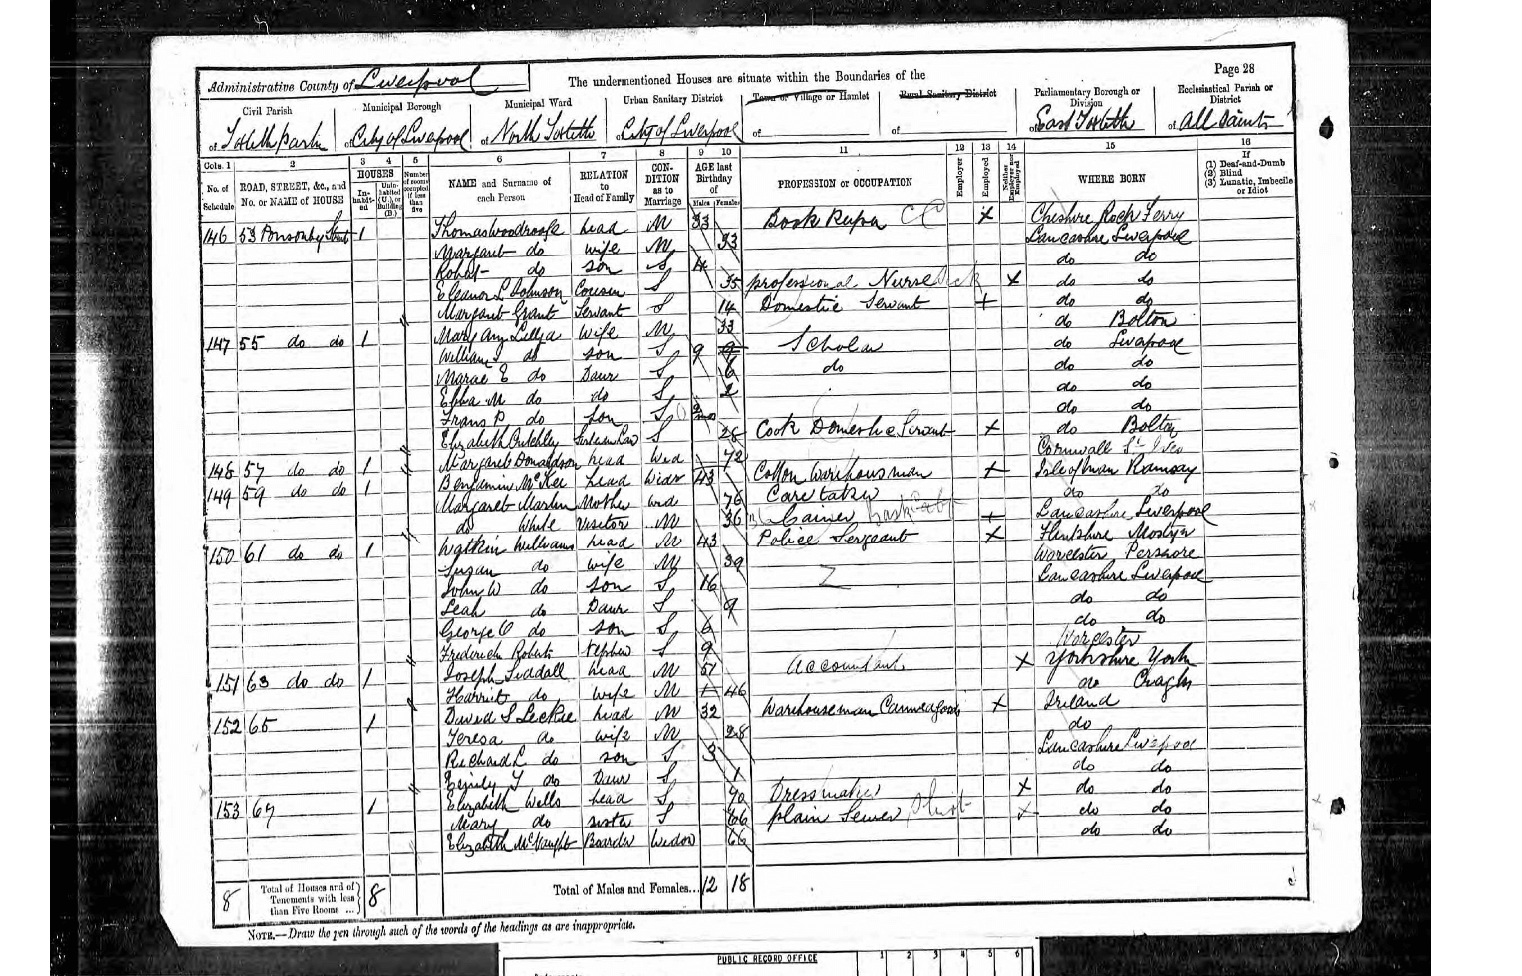 Administrative County of Liverpool
The undermentioned Houses are situate within the Boundaries of the
Page 28
Civil Parish
Municipal Borough
Municipal Ward
Urban Sanitary District
Town or Village or Hamlet
Rural Sanitary District
Parliamentary Borough or Division
Ecclesiastical Parish or District
of Toxteth Park
of City of Liverpool
of North Toxteth
of City of Liverpool
of
of
of East Toxteth
of All Saints
Cols. 1 2 3 4 5 6 7 8 9 10 11 12 13 14 15 16
No. of Schedule
ROAD, STREET, &c., and No. or NAME of HOUSE
HOUSES
Inhabited
Uninhabited (U.), or Building (B.)
Number of rooms occupied if less than five
NAME and Surname of each Person
RELATION to Head of Family
CONDITION as to Marriage
AGE last Birthday of
Males Females
PROFESSION or OCCUPATION
Employer
Employed
Neither Employer nor Employed
WHERE BORN
If
(1) Deaf-and-Dumb
(2) Blind
(3) Lunatic, Imbecile or Idiot
146 53 Ponsonby Street 1 Thomas Woodroofe head M 33 Book Keeper CC X Cheshire Rock Ferry
Margaret do wife M 33 Lancashire Liverpool
Robert do son S 4 do do
Eleanor L Johnson Cousin S 35 professional Nurse X do do
Margaret Grant Servant S 14 Domestic Servant + do do
147 55 do do 1 Mary Ann Lillja Wife M 33 do Bolton
William do son S 9 Scholar do Liverpool
Marae E do Daur S 6 do do do
Ebba M do do S 2 do do
Frans P do son S do do
Elizabeth Critchley Sister in Law S 28 Cook Domestic Servant X do Bolton
148 57 do do 1 Margaret Donaldson head Wid 72 Cornwall St Ives
149 59 do do 1 Benjamin McKee head Widr 43 Cotton Warehousman + Isle of man Ramsay
Margaret Martin Mother wid 76 Caretaker do do
do White Visitor M 36 + Lancashire Liverpool
150 61 do do 1 Watkin Williams head M 43 Police Sergeant X Flintshire Mostyn
Susan do wife M 39 Worcester Pershore
John W do son S 16 Lancashire Liverpool
Leah do Daur S 9 do do
George O do son S 6 do do
Frederick Roberts Nephew S 9 Worcester
151 63 do do 1 Joseph Siddall head M 51 Accountant X Yorkshire York
Harriet do wife M 46 do
152 65 1 David S Leckie head M 32 Warehouseman Canned goods X Ireland
Teresa do wife M 28 do
Richard L do son S 3 Lancashire Liverpool
Emily T do Daur S 1 do do
153 67 1 Elizabeth Wells head S 70 Dressmaker X do do
Mary do sister S 66 plain Sewer Shirt X do do
Elizabeth McVaught Boarder Widow 66 do do
8 Total of Houses and of Tenements with less than Five Rooms ... 8
Total of Males and Females... 12 18
NOTE.—Draw the pen through such of the words of the headings as are inappropriate.
PUBLIC RECORD OFFICE 1 2 3 4 5 6